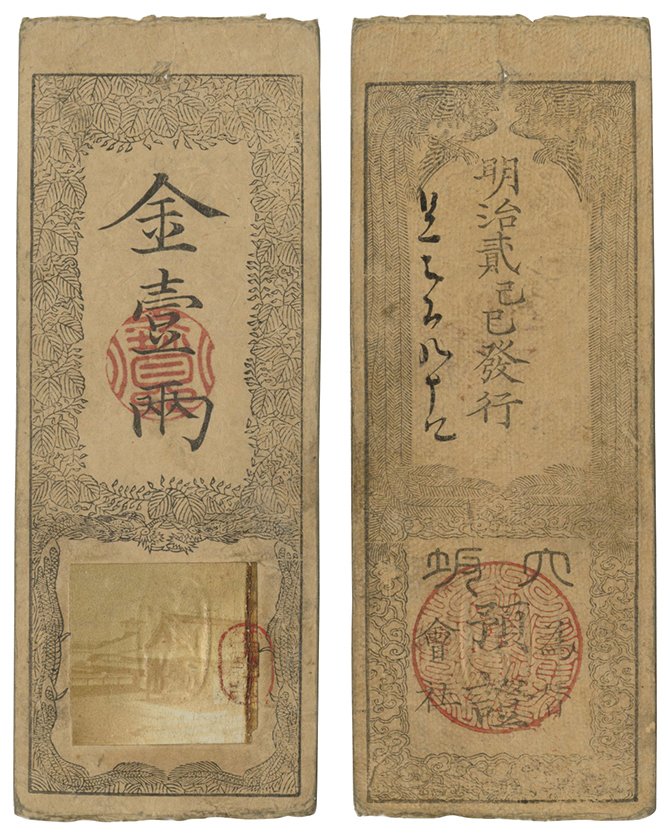 金壹兩
明治貳己巳發行
大坂
為替
會社
預證